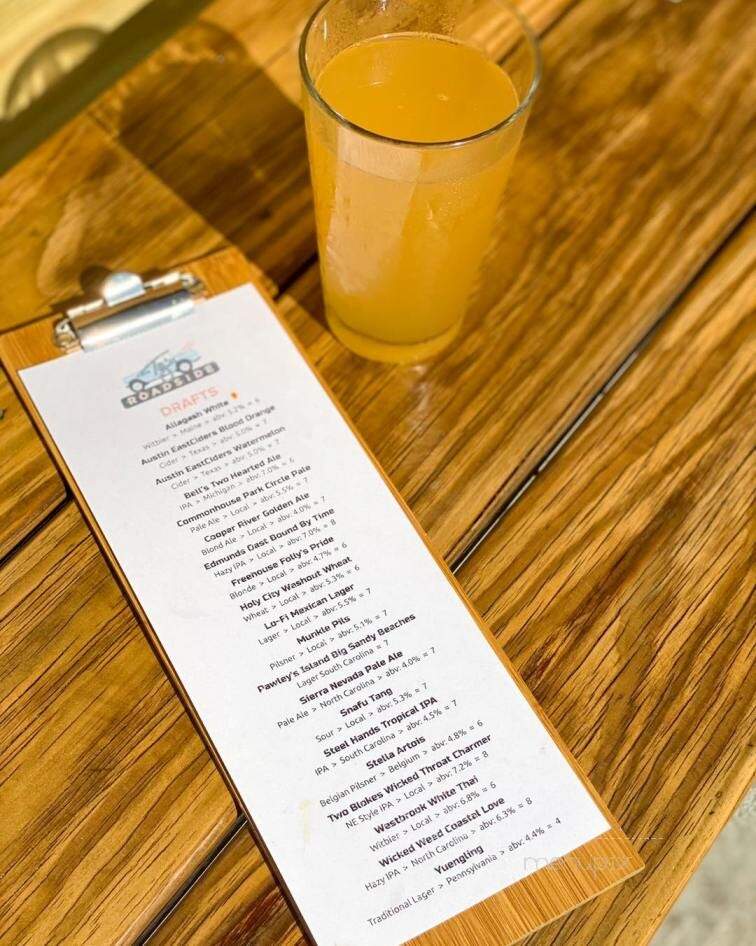 ROADSIDE
DRAFTS
Allagash White
Witbier > Maine > abv: 5.2% = 6
Austin EastCiders Blood Orange
Cider > Texas > abv: 5.0% = 7
Austin EastCiders Watermelon
Cider > Texas > abv: 5.0% = 7
Bell's Two Hearted Ale
IPA > Michigan > abv: 7.0% = 6
Commonhouse Park Circle Pale
Pale Ale > Local > abv: 5.5% = 7
Cooper River Golden Ale
Blond Ale > Local > abv: 4.0% = 7
Edmunds Oast Bound By Time
Hazy IPA > Local > abv: 7.0% = 8
Freehouse Folly's Pride
Blonde > Local > abv: 4.7% = 6
Holy City Washout Wheat
Wheat > Local > abv: 5.3% = 6
Lo-Fi Mexican Lager
Lager > Local > abv: 5.5% = 7
Munkle Pils
Pilsner > Local > abv: 5.1% = 7
Pawley's Island Big Sandy Beaches
Lager South Carolina = 7
Sierra Nevada Pale Ale
Pale Ale > North Carolina > abv: 4.0% = 7
Snafu Tang
Sour > Local > abv: 5.3% = 7
Steel Hands Tropical IPA
IPA > South Carolina > abv: 4.5% = 7
Stella Artois
Belgian Pilsner > Belgium > abv: 4.8% = 6
Two Blokes Wicked Throat Charmer
NE Style IPA > Local > abv: 7.2% = 8
Westbrook White Thai
Witbier > Local > abv: 6.8% = 6
Wicked Weed Coastal Love
Hazy IPA > North Carolina > abv: 6.3% = 8
Yuengling
Traditional Lager > Pennsylvania > abv: 4.4% = 4
menupix